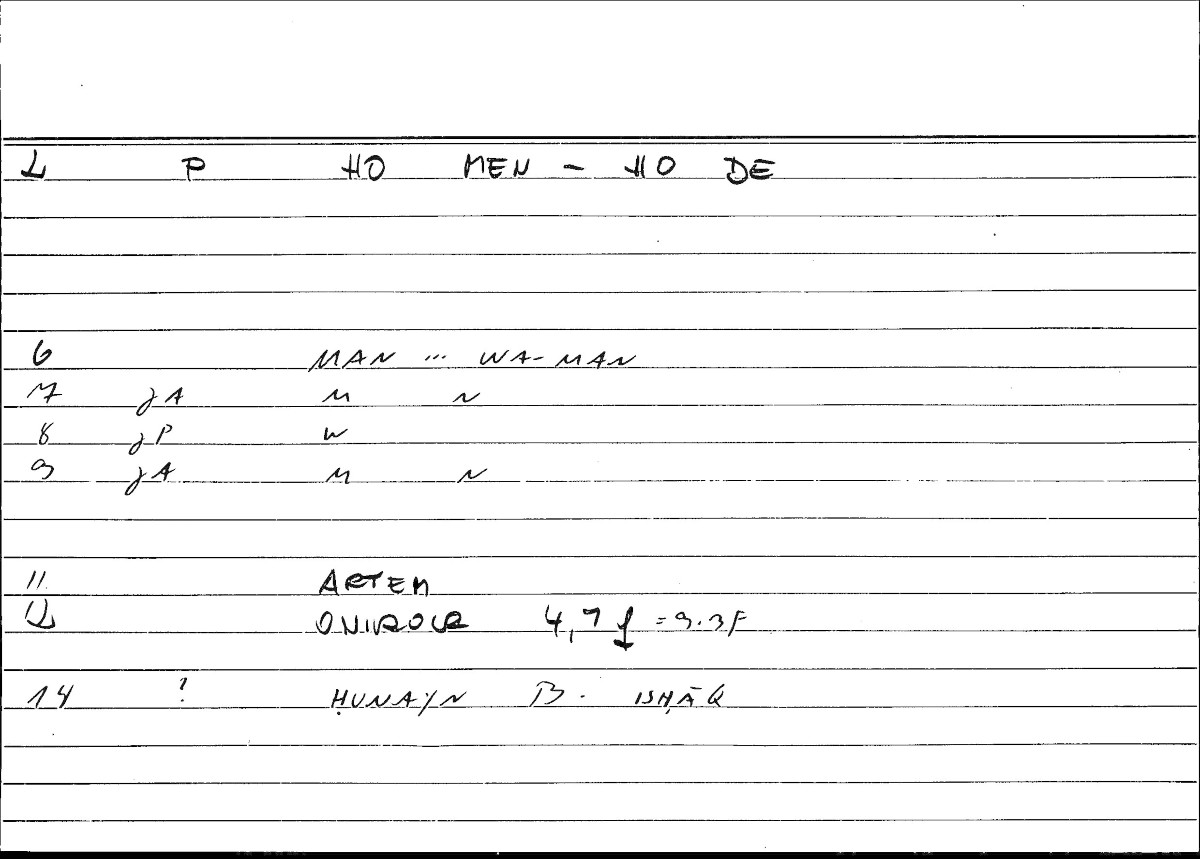 1 P HO MEN – HO DE
6 MAN ... WA-MAN
7 jA M N
8 jP W
9 jA M N
11 ARTEM
12 ONIROCR 4,7 = 9.3F
14 ? ḤUNAYN B. ISḤĀQ